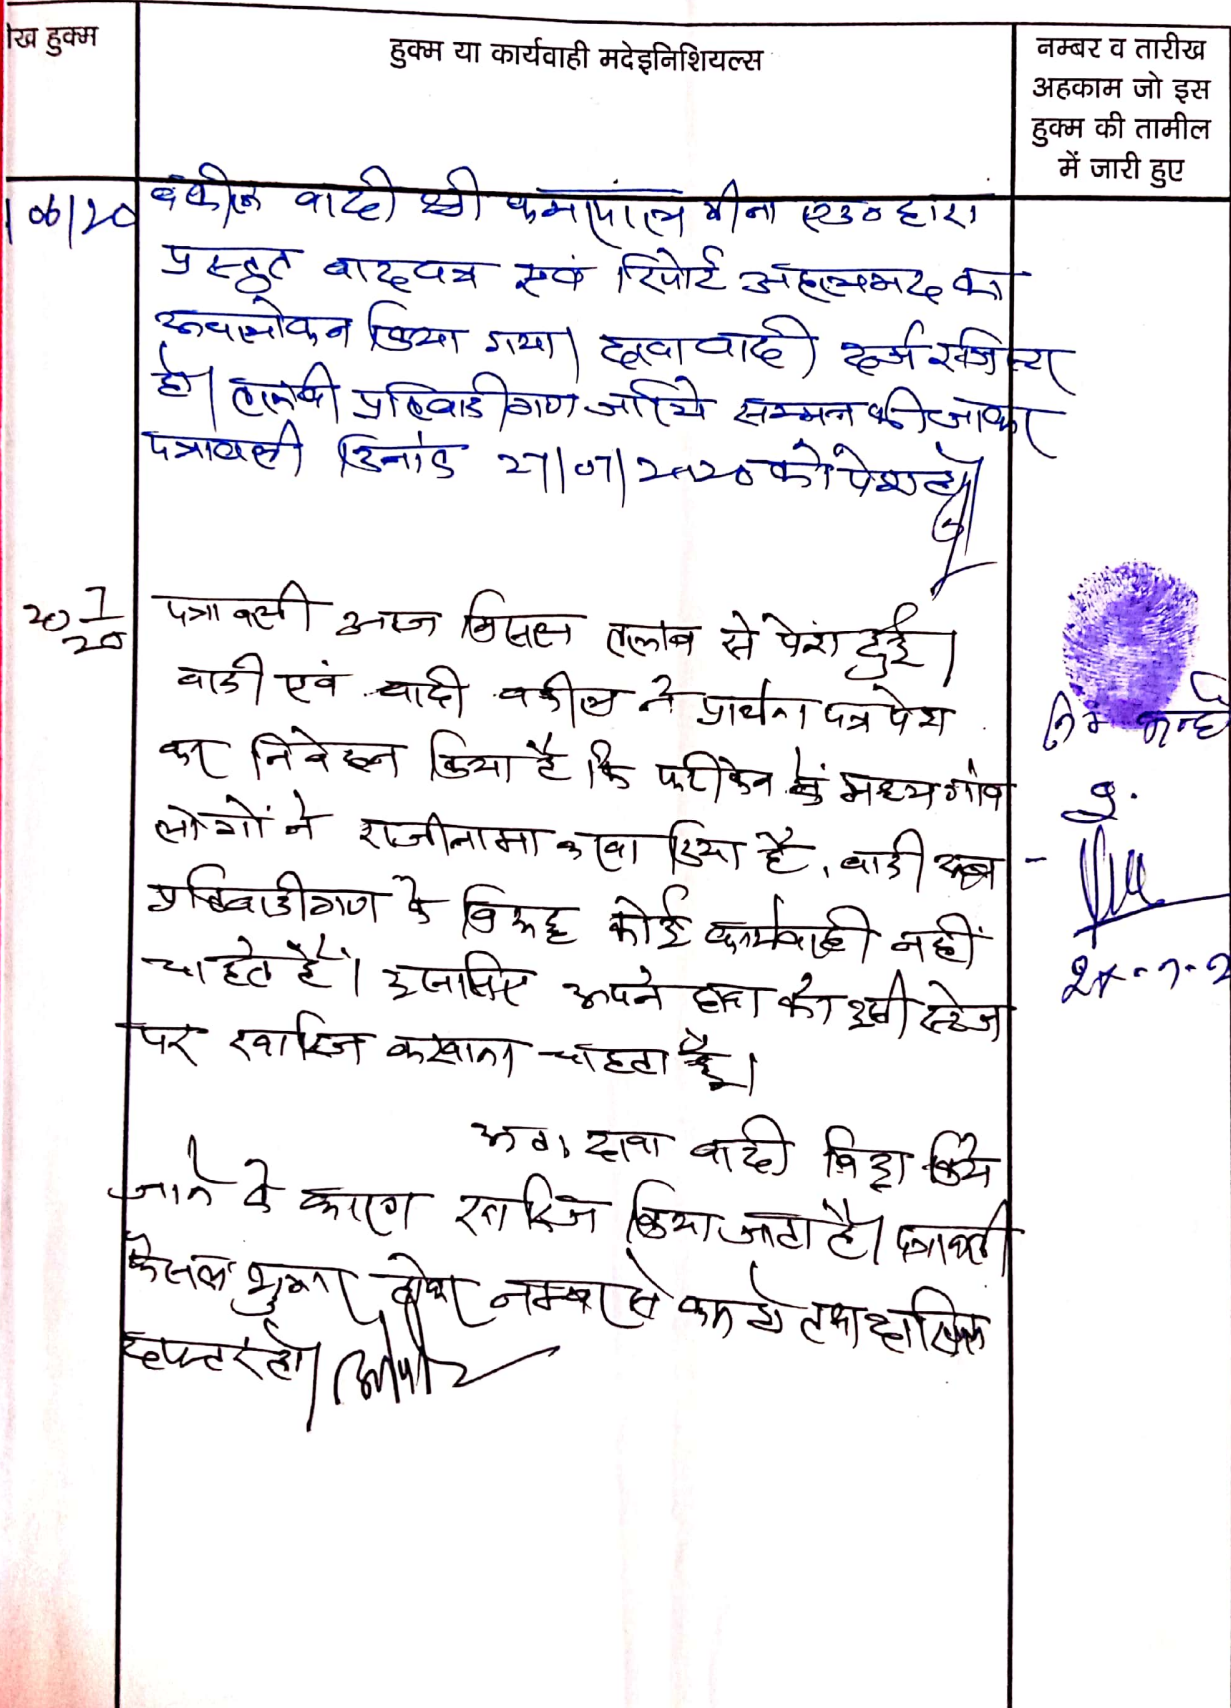 ख हुक्म
हुक्म या कार्यवाही मदेइनिशियल्स
नम्बर व तारीख
अहकाम जो इस
हुक्म की तामील
में जारी हुए
06/20
वकील वादी श्री मीना एड० द्वारा
प्रस्तुत वादपत्र एवं रिपोर्ट अहलमद का
अवलोकन किया गया। दावा वादी दर्ज रजिस्टर
हो। तलबी प्रतिवादीगण जरिये सम्मन की जाकर
पत्रावली दिनांक 27/07/2020 को पेश हो।
20 7/20
पत्रावली आज मिसल तलब से पेश हुई।
वादी एवं वादी वकील ने प्रार्थना पत्र पेश
कर निवेदन किया है कि फरीकेन के मध्य गांव
लोगों ने राजीनामा करवा दिया है, वादी अब
प्रतिवादीगण के विरुद्ध कोई कार्यवाही नहीं
चाहते हैं। इसलिए अपने दावा को इसी स्टेज
पर खारिज करवाना चाहता है।
अतः दावा वादी विड्रा किये
जाने के कारण खारिज किया जाता है। पत्रावली
फैसल शुमार होकर नम्बर से कम हो तथा दाखिल
दफ्तर हो।